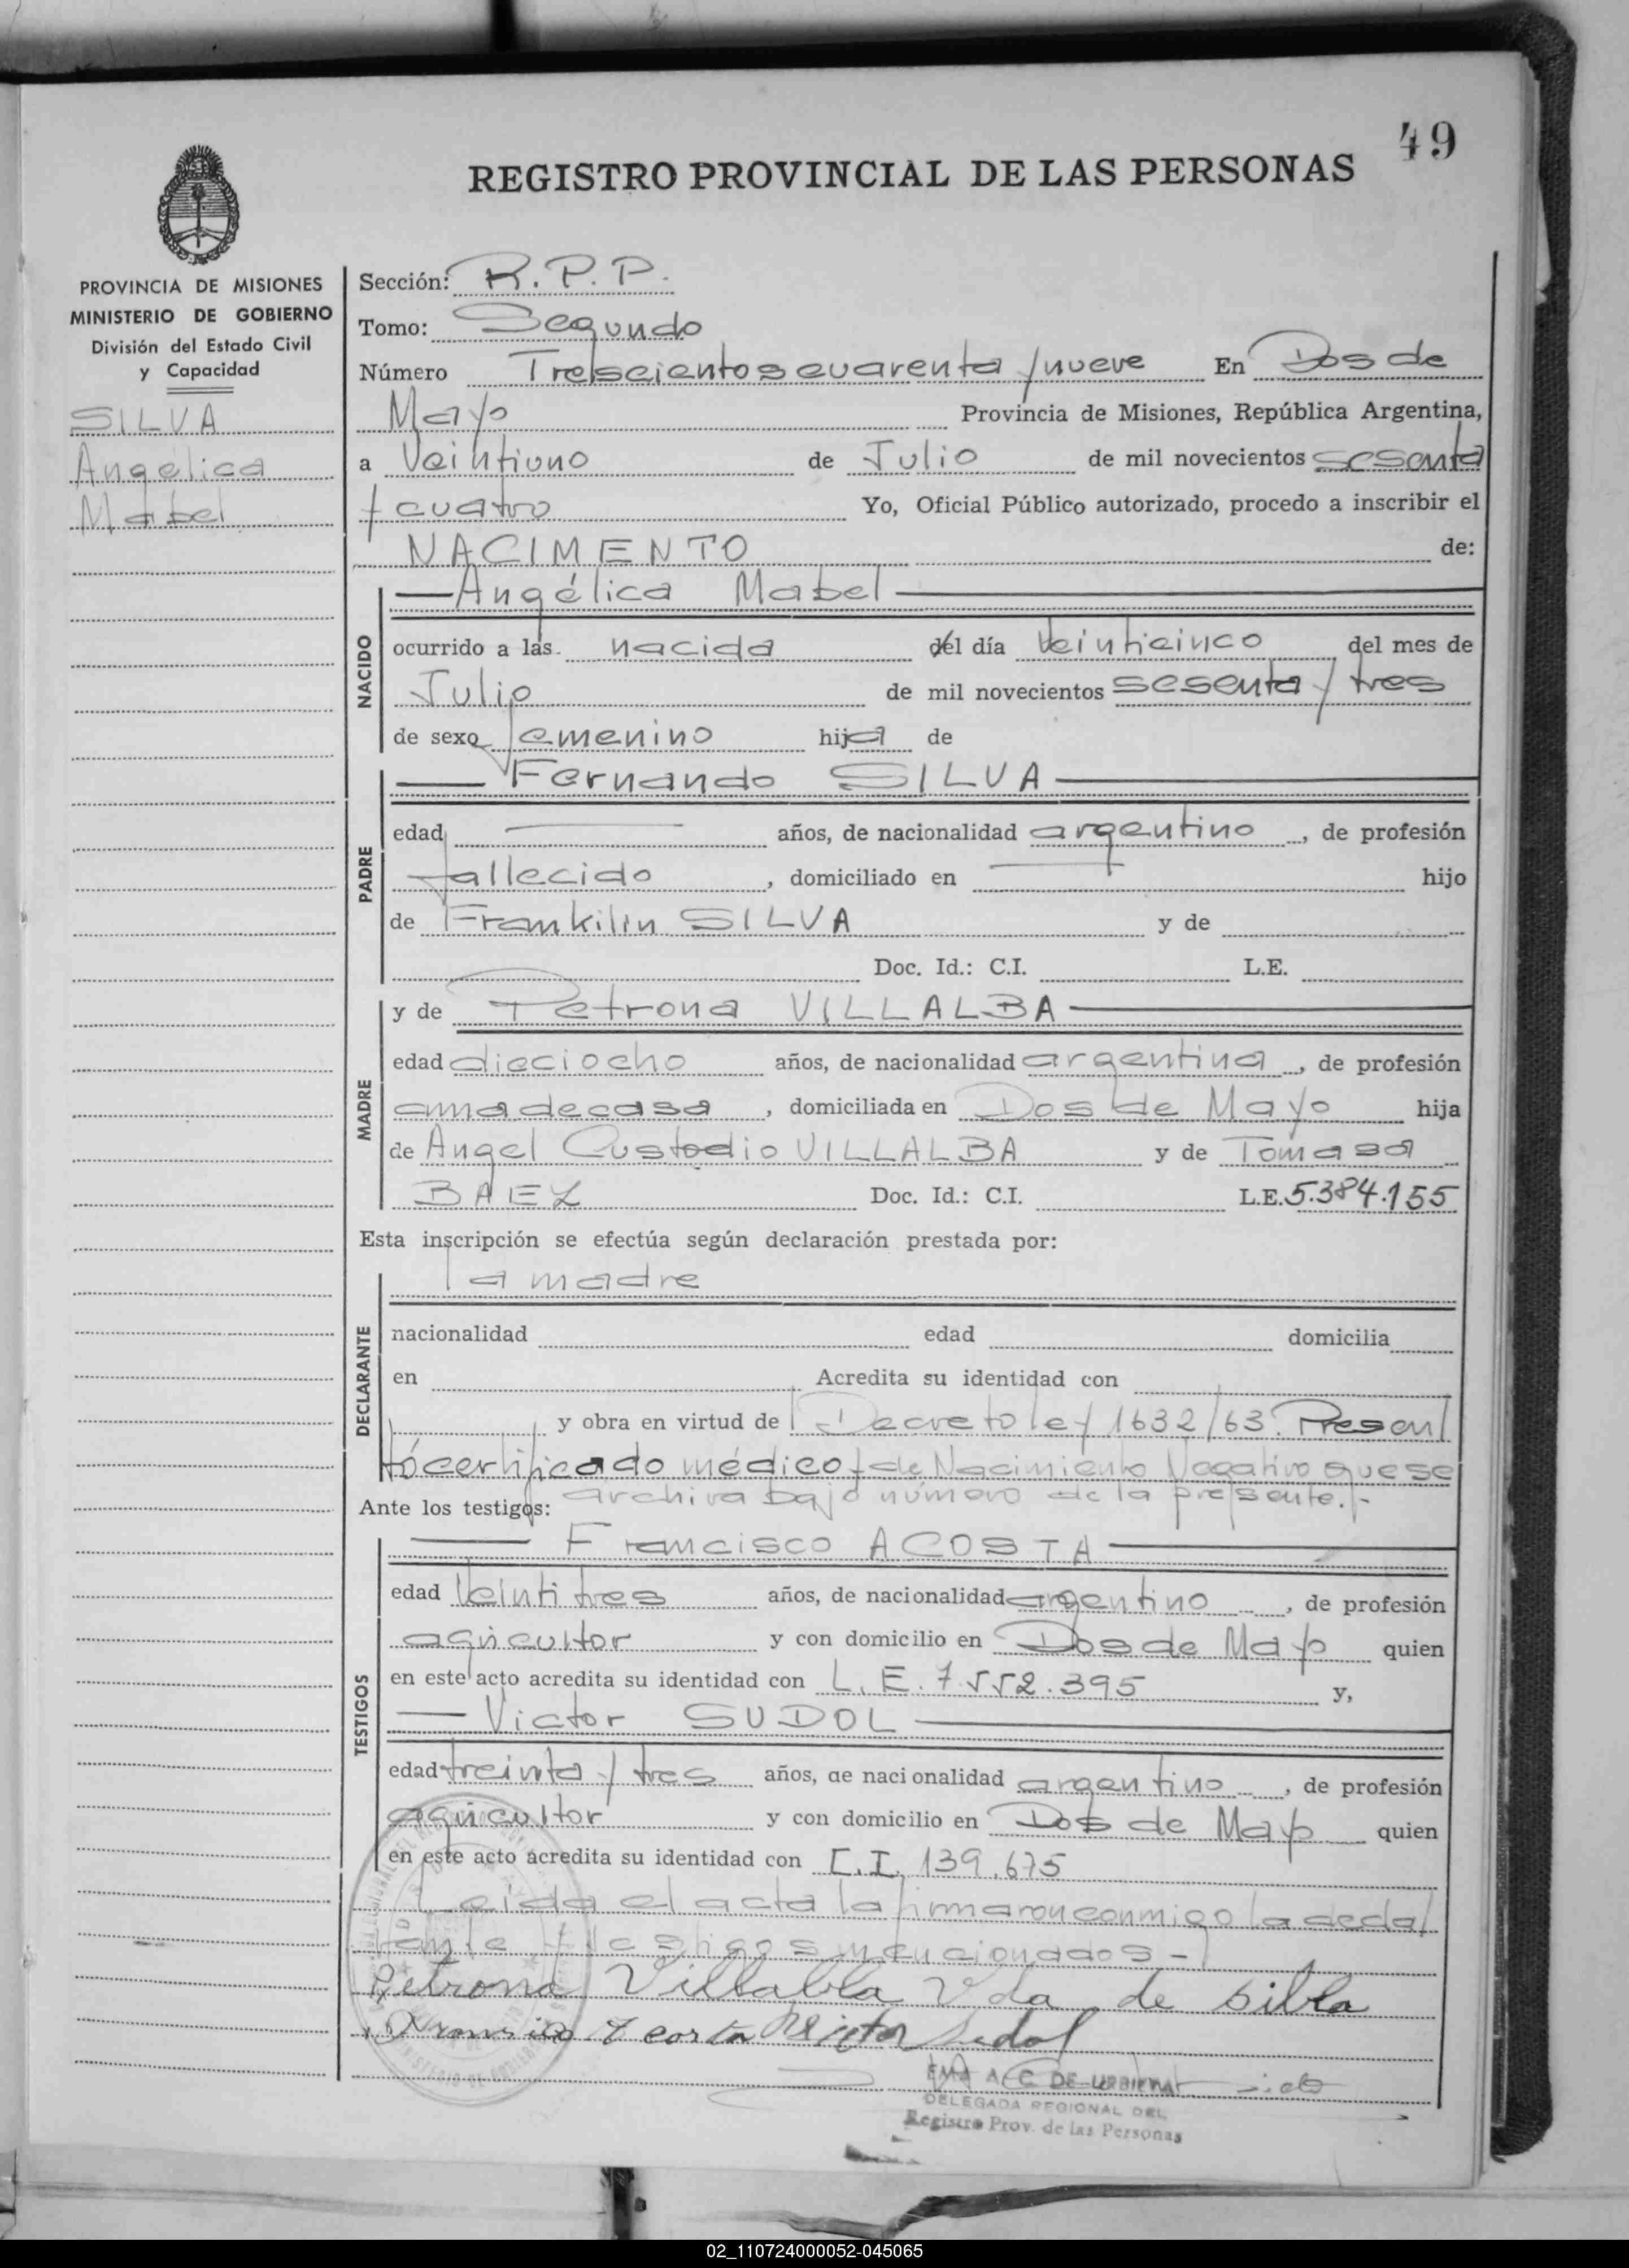 49
REGISTRO PROVINCIAL DE LAS PERSONAS
PROVINCIA DE MISIONES
MINISTERIO DE GOBIERNO
División del Estado Civil
y Capacidad
SILVA
Angélica
Mabel
Sección: R.P.P.
Tomo: Segundo
Número Trescientos cuarenta y nueve En Dos de
Mayo Provincia de Misiones, República Argentina,
a Veintiuno de Julio de mil novecientos sesenta
y cuatro Yo, Oficial Público autorizado, procedo a inscribir el
NACIMENTO de:
NACIDO
Angélica Mabel
ocurrido a las nacida del día veinticinco del mes de
Julio de mil novecientos sesenta y tres
de sexo femenino hija de
PADRE
Fernando SILVA
edad años, de nacionalidad argentino, de profesión
fallecido, domiciliado en hijo
de Frankilin SILVA y de
Doc. Id.: C.I. L.E.
MADRE
y de Petrona VILLALBA
edad dieciocho años, de nacionalidad argentina, de profesión
ama de casa, domiciliada en Dos de Mayo hija
de Angel Custodio VILLALBA y de Tomasa
BAEZ Doc. Id.: C.I. L.E. 5.384.155
Esta inscripción se efectúa según declaración prestada por:
DECLARANTE
la madre
nacionalidad edad domicilia
en Acredita su identidad con
y obra en virtud de Decreto ley 1632/63. Presen
tó certificado médico y de Nacimiento Negativo que se
archiva bajo número de la presente.-
Ante los testigos:
TESTIGOS
Francisco ACOSTA
edad veintitres años, de nacionalidad argentino, de profesión
agricultor y con domicilio en Dos de Mayo quien
en este acto acredita su identidad con L.E. 7.552.395 y,
Victor SUDOL
edad treinta y tres años, de nacionalidad argentino, de profesión
agricultor y con domicilio en Dos de Mayo quien
en este acto acredita su identidad con C.I. 139.675
Leida el acta la firmaron conmigo la decla
rante y testigos mencionados-
Petrona Villabla Vda de Silba
Francisco Acosta Victor Sudol
DELEGADA REGIONAL DEL
Registro Prov. de las Personas
02_110724000052-045065